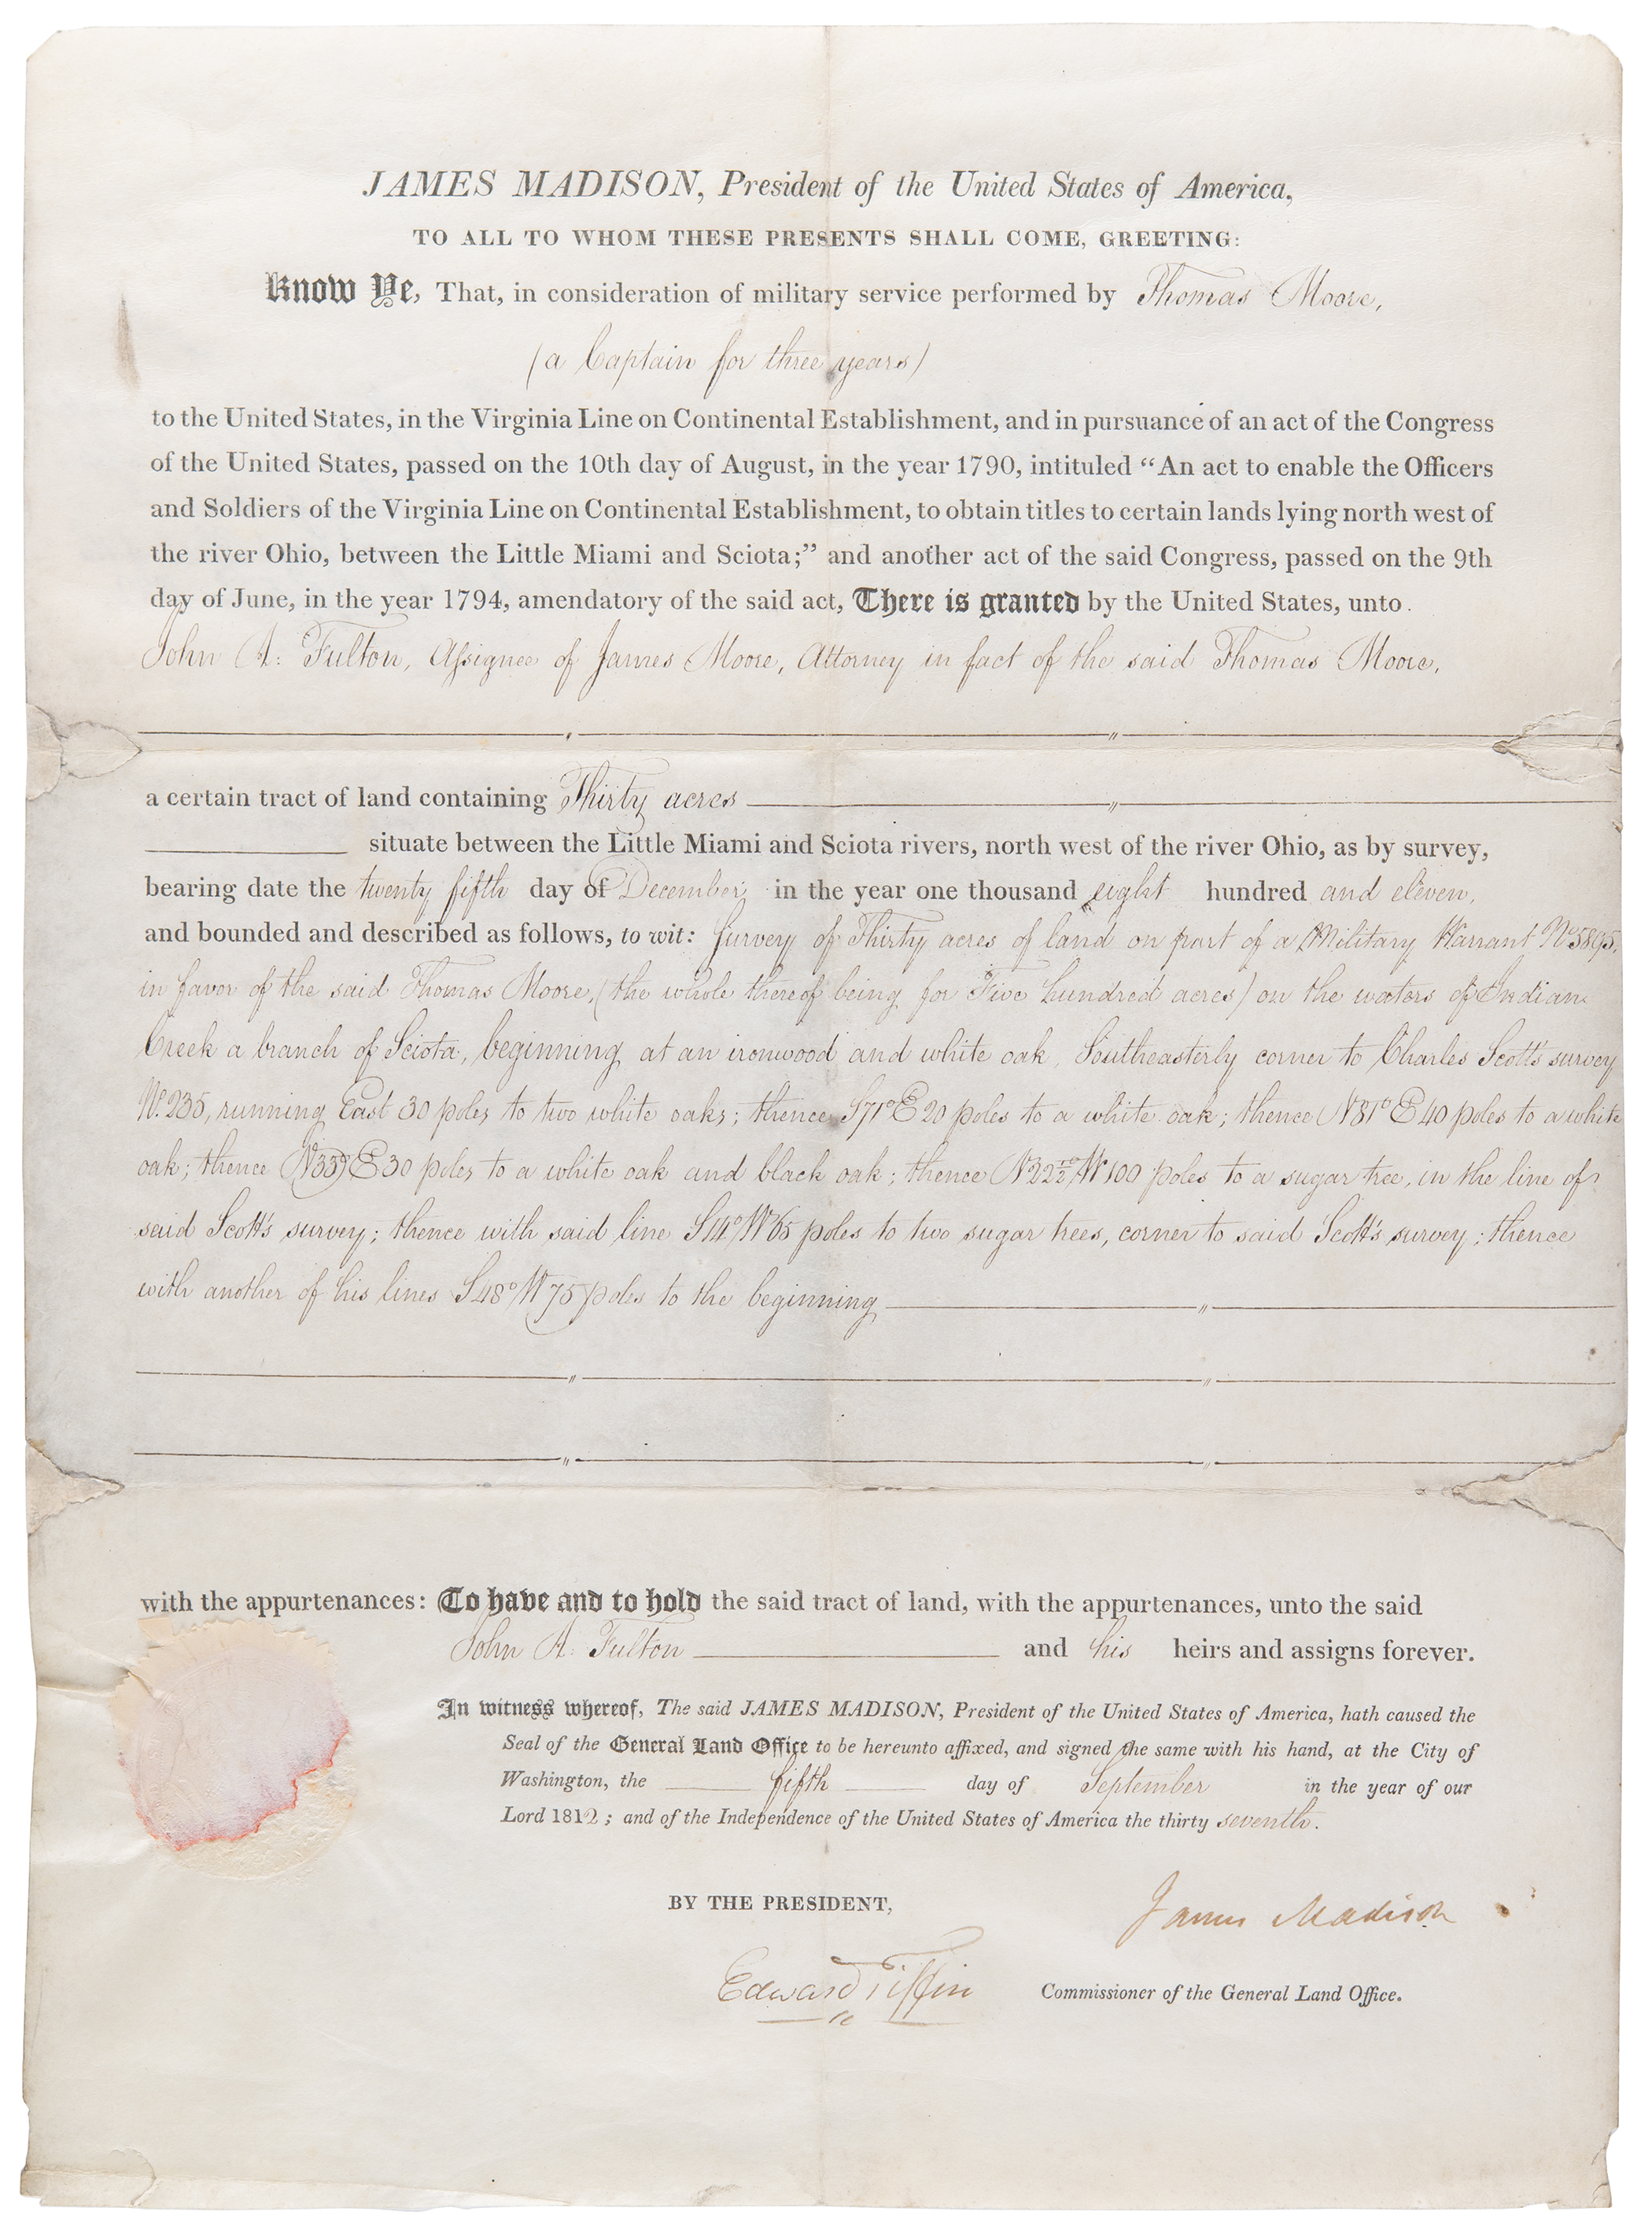 JAMES MADISON, President of the United States of America,
TO ALL TO WHOM THESE PRESENTS SHALL COME, GREETING:
Know Ye, That, in consideration of military service performed by Thomas Moore,
(a Captain for three years)
to the United States, in the Virginia Line on Continental Establishment, and in pursuance of an act of the Congress
of the United States, passed on the 10th day of August, in the year 1790, intituled “An act to enable the Officers
and Soldiers of the Virginia Line on Continental Establishment, to obtain titles to certain lands lying north west of
the river Ohio, between the Little Miami and Sciota;” and another act of the said Congress, passed on the 9th
day of June, in the year 1794, amendatory of the said act, There is granted by the United States, unto
John A. Fulton, Assignee of James Moore, Attorney in fact of the said Thomas Moore,
a certain tract of land containing Thirty acres
situate between the Little Miami and Sciota rivers, north west of the river Ohio, as by survey,
bearing date the twenty fifth day of December in the year one thousand eight hundred and eleven,
and bounded and described as follows, to wit: Survey of Thirty acres of land on part of a Military Warrant No.
in favor of the said Thomas Moore, (the whole thereof being for Five hundred acres) on the waters of Indian
Creek a branch of Sciota, beginning at an ironwood and white oak, Southeasterly corner to Charles Scott's survey
No. 235, running East 30 poles to two white oaks; thence S71°E 20 poles to a white oak; thence N81°E 40 poles to a white
oak; thence E 30 poles to a white oak and black oak; thence N22½°W 100 poles to a sugar tree, in the line of
said Scott's survey; thence with said line S14°W 65 poles to two sugar trees, corner to said Scott's survey; thence
with another of his lines S48°W 75 poles to the beginning
with the appurtenances: To have and to hold the said tract of land, with the appurtenances, unto the said
John A. Fulton and his heirs and assigns forever.
In witness whereof, The said JAMES MADISON, President of the United States of America, hath caused the
Seal of the General Land Office to be hereunto affixed, and signed the same with his hand, at the City of
Washington, the fifth day of September in the year of our
Lord 1812; and of the Independence of the United States of America the thirty seventh.
BY THE PRESIDENT,
James Madison
Edward Tiffin Commissioner of the General Land Office.